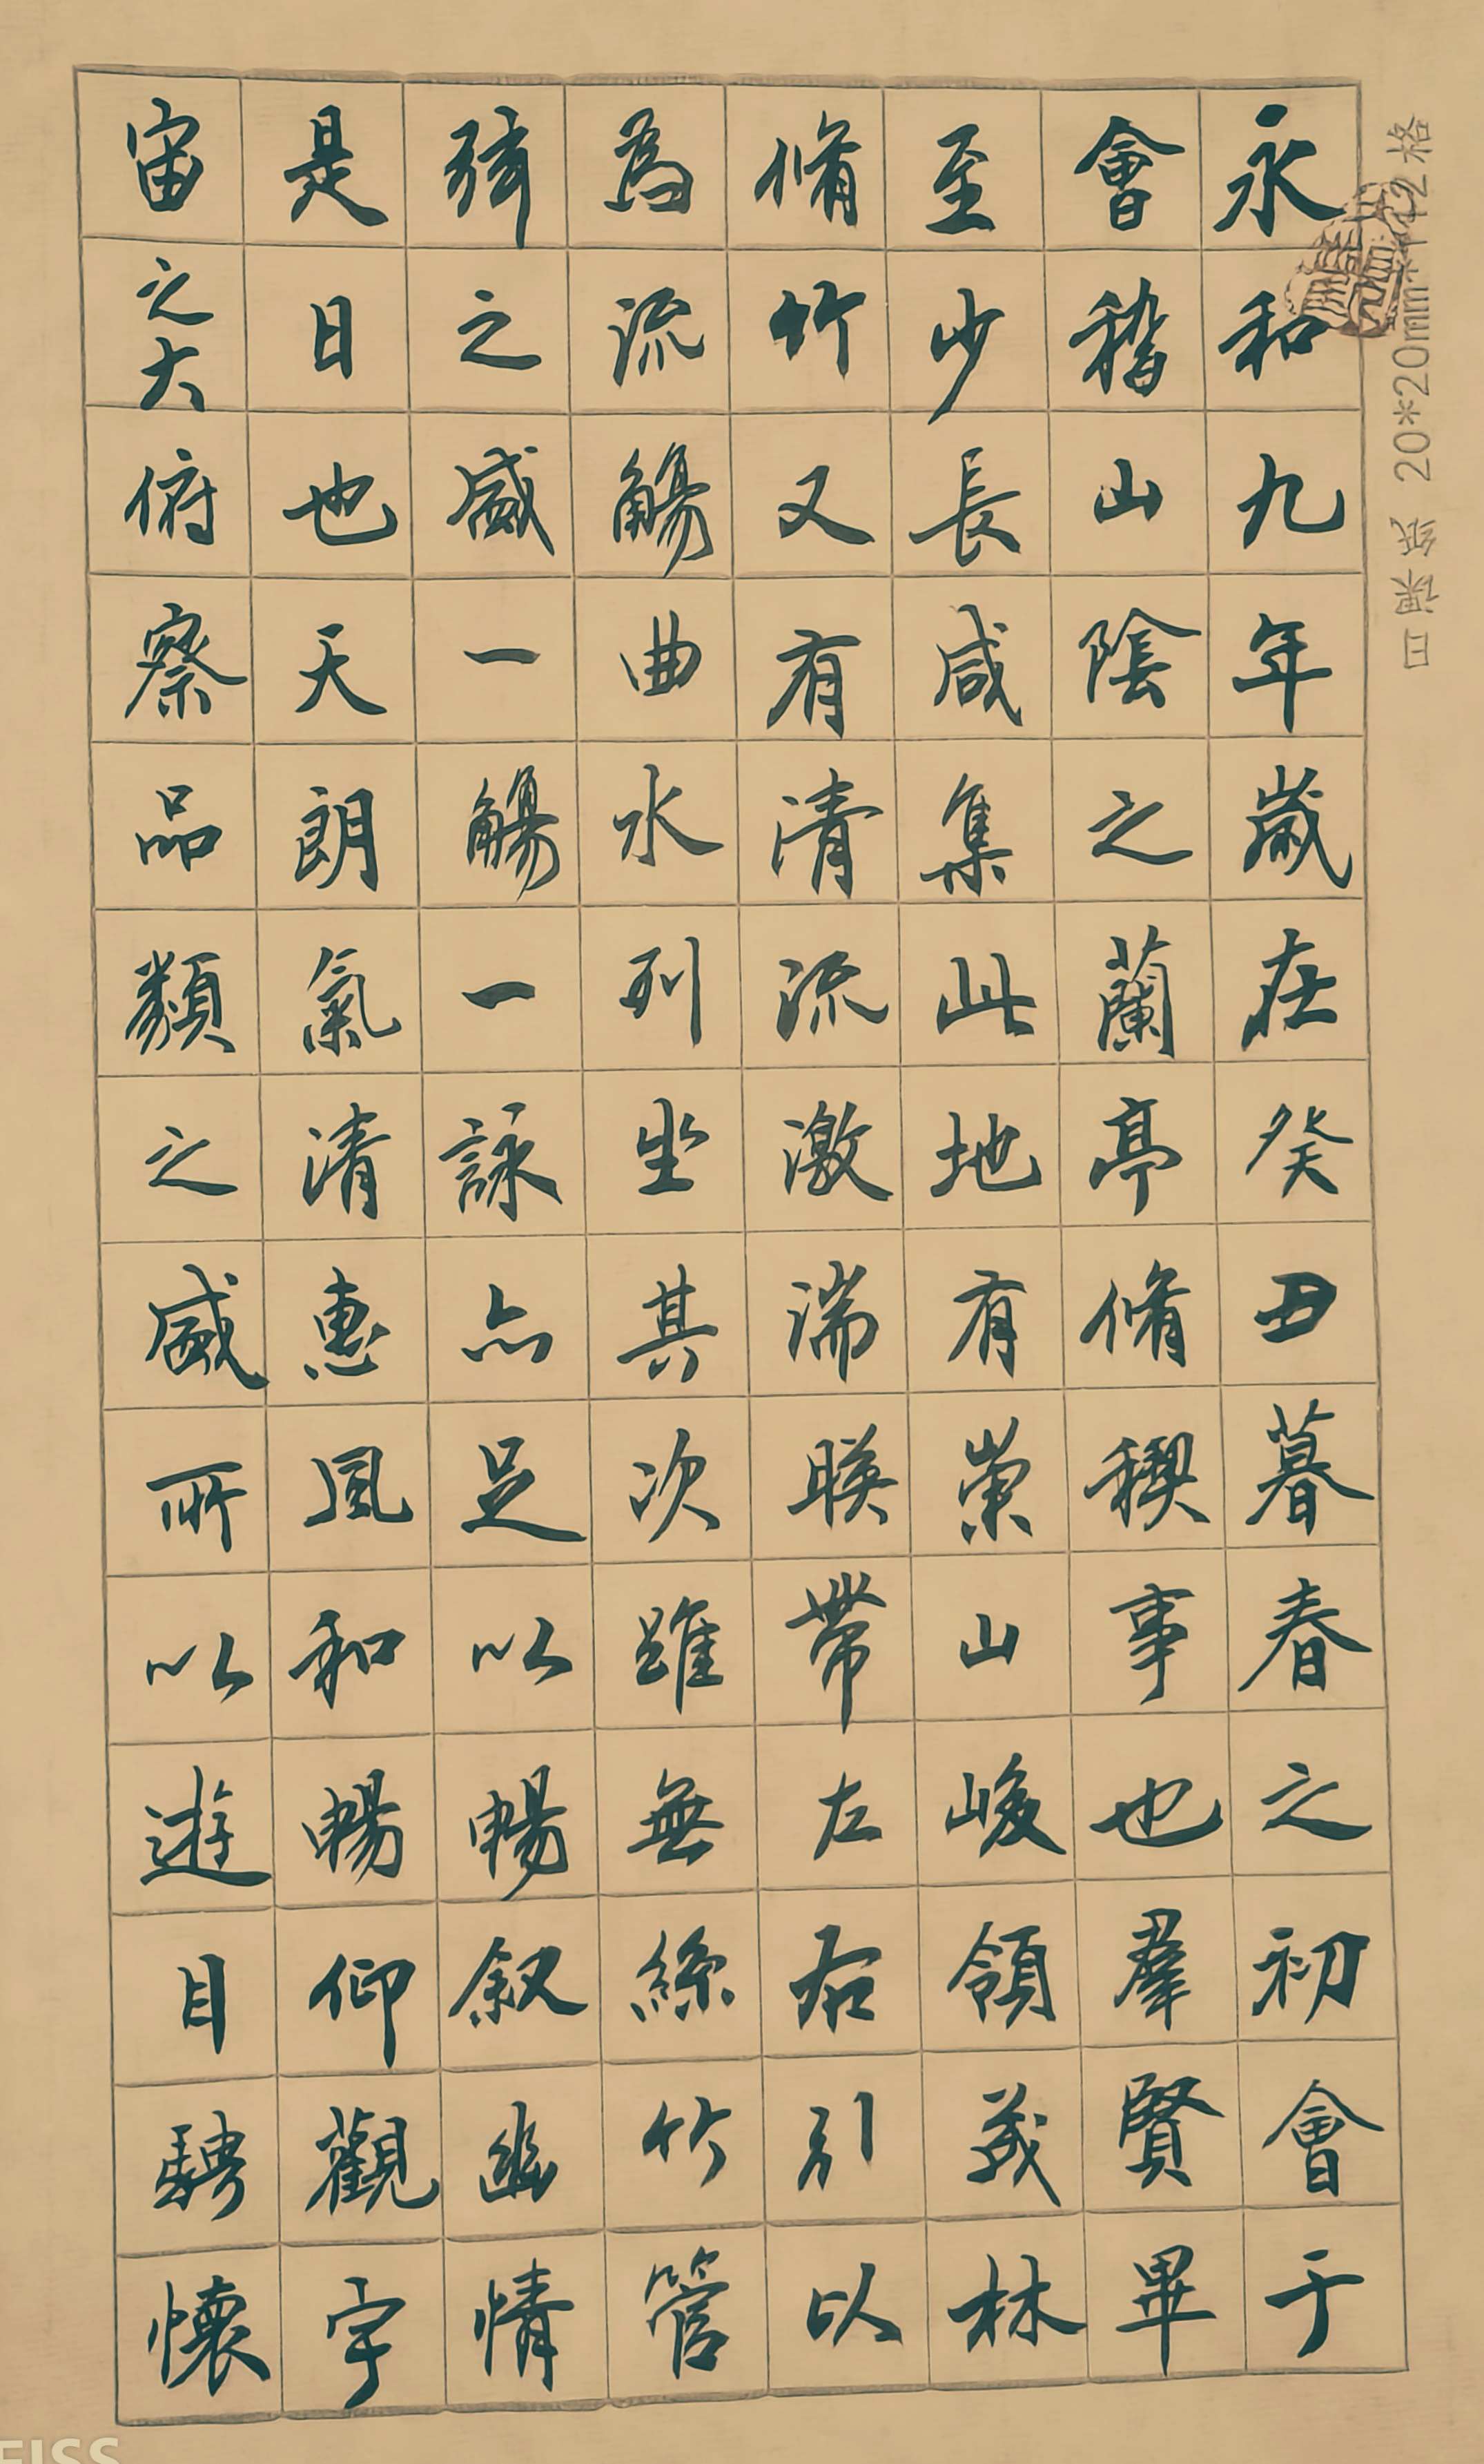 永和九年歲在癸丑暮春之初會于
會稽山陰之蘭亭脩稧事也羣賢畢
至少長咸集此地有崇山峻領茂林
脩竹又有清流激湍暎帶左右引以
為流觴曲水列坐其次雖無絲竹管
弦之盛一觴一詠亦足以暢叙幽情
是日也天朗氣清惠風和暢仰觀宇
宙之大俯察品類之盛所以遊目騁懷
日课纸 20*20mm*112格
EISS